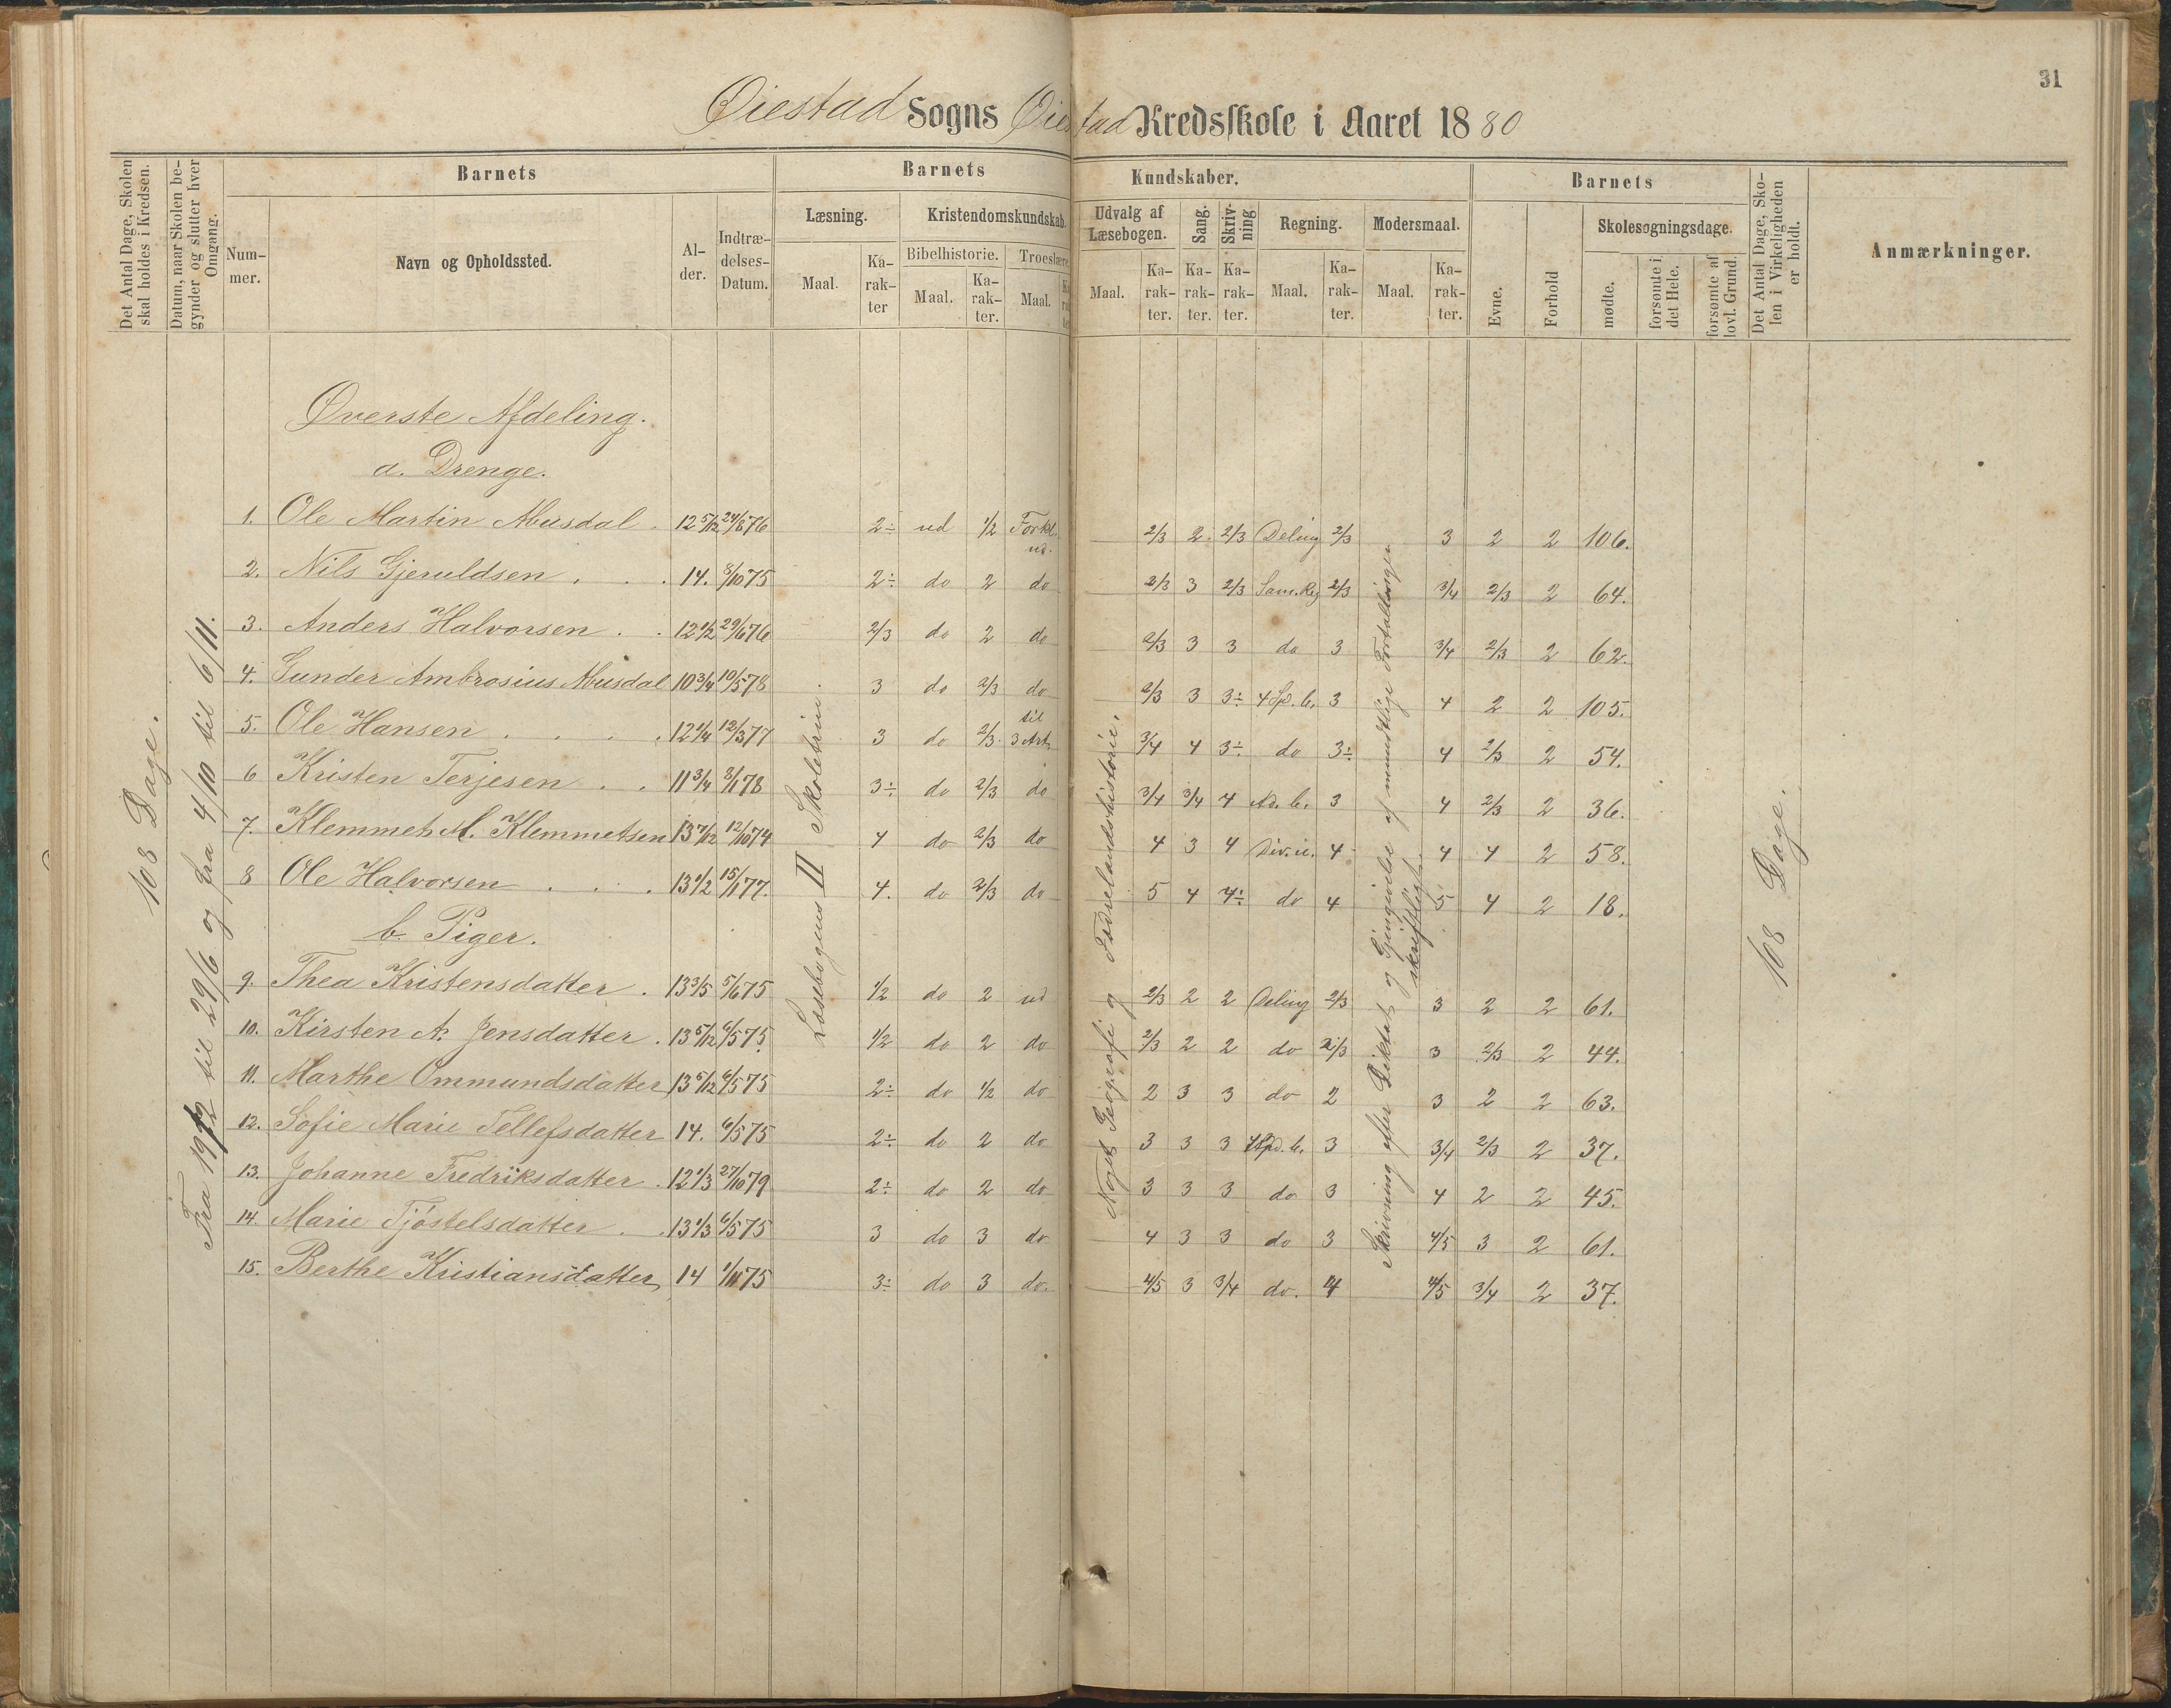 31
Øiestad Sogns Øiestad Kredsskole i Aaret 1880
Det Antal Dage, Skolen skal holdes i Kredsen.
Datum, naar Skolen begynder og slutter hver Omgang.
Barnets
Nummer.
Navn og Opholdssted.
Alder.
Indtrædelses-Datum.
Barnets Kundskaber.
Læsning.
Maal.
Karakter
Kristendomskundskab.
Bibelhistorie.
Maal.
Karakter.
Troeslære.
Maal.
Udvalg af Læsebogen.
Maal.
Karakter.
Sang.
Karakter.
Skrivning
Karakter.
Regning.
Maal.
Karakter.
Modersmaal.
Maal.
Karakter.
Barnets
Evne.
Forhold
Skolesøgningsdage.
mødte.
forsømte i det Hele.
forsømte af lovl. Grund.
Det Antal Dage, Skolen i Virkeligheden er holdt.
Anmærkninger.
108 Dage.
til 29/6 og fra 4/10 til 6/11.
Læsebogens II Skoletrin.
Noget Geografi og Fædrelandshistorie.
Skrivning efter Diktat og Gjengivelse af mundtlige Fortællinger skriftligt.
108 Dage.
Øverste Afdeling.
a. Drenge.
1. Ole Martin Musdal . 12 5/12 24/6 76 2÷ ud 1/2 Forkl. ud. 2/3 2. 2/3 Deling 2/3 3 2 2 106.
2. Nils Gjeruldsen . . . 14. 8/10 75 2÷ do 2 do 2/3 3 2/3 Sam.Reg 2/3 3/4 2/3 2 64.
3. Anders Halvorsen . . 12 1/2 29/6 76 2/3 do 2 do 2/3 3 3 do 3 3/4 2/3 2 62.
4. Gunder Ambrosius Musdal 10 3/4 10/5 78 3 do 2/3 do 2/3 3 3÷ 4 Sp. b. 3 4 2 2 105.
5. Ole Hansen . . . . 12 1/4 12/3 77 3 do 2/3 til 3 Art. 3/4 4 3÷ do 3÷ 4 2/3 2 54.
6 Kristen Terjesen . . 11 3/4 8/1 78 3÷ do 2/3 do 3/4 3/4 4 Ad. b. 3 4 2/3 2 36.
7. Klemmet M. Klemmetsen 13 7/12 12/10 74 4 do 2/3 do 4 3 4 4 4 4 2 58.
8 Ole Halvorsen . . . 13 1/2 15/1 77. 4. do 2/3 do 5 4 4÷ do 4 5 4 2 18.
b. Piger.
9. Thea Kristensdatter . 13 3/5 5/6 75 1/2 do 2 ud 2/3 2 2 Deling 2/3 3 2 2 61.
10. Kirsten A. Jensdatter . 13 5/12 6/5 75 1/2 do 2 do 2/3 2 2 do 2/3 3 2/3 2 44.
11. Marthe Ommundsdatter 13 5/12 6/5 75 2÷ do 1/2 do 2 3 3 do 2 3 2 2 63.
12. Sofie Marie Tellefsdatter 14. 6/5 75 2÷ do 2 do 3 3 3 3 3/4 2/3 2 37.
13. Johanne Fredriksdatter . 12 1/3 27/10 79 2÷ do 2 do 3 3 3 do 3 4 2 2 45.
14. Marie Tjøstelsdatter . . 13 1/3 6/5 75 3 do 3 do 4 3 3 do 3 4/5 3 2 61.
15. Berthe Kristiansdatter 14 1/11 75 3÷ do 3 do. 4/5 3 3/4 do. 4 4/5 3/4 2 37.